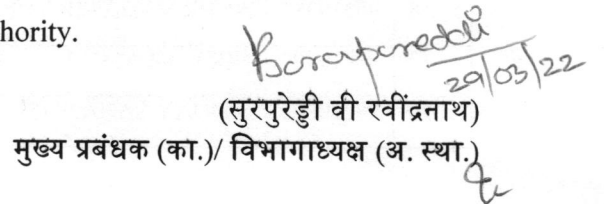 hority.
29/03/22
(सुरपुरेड्डी वी रवींद्रनाथ)
मुख्य प्रबंधक (का.)/ विभागाध्यक्ष (अ. स्था.)